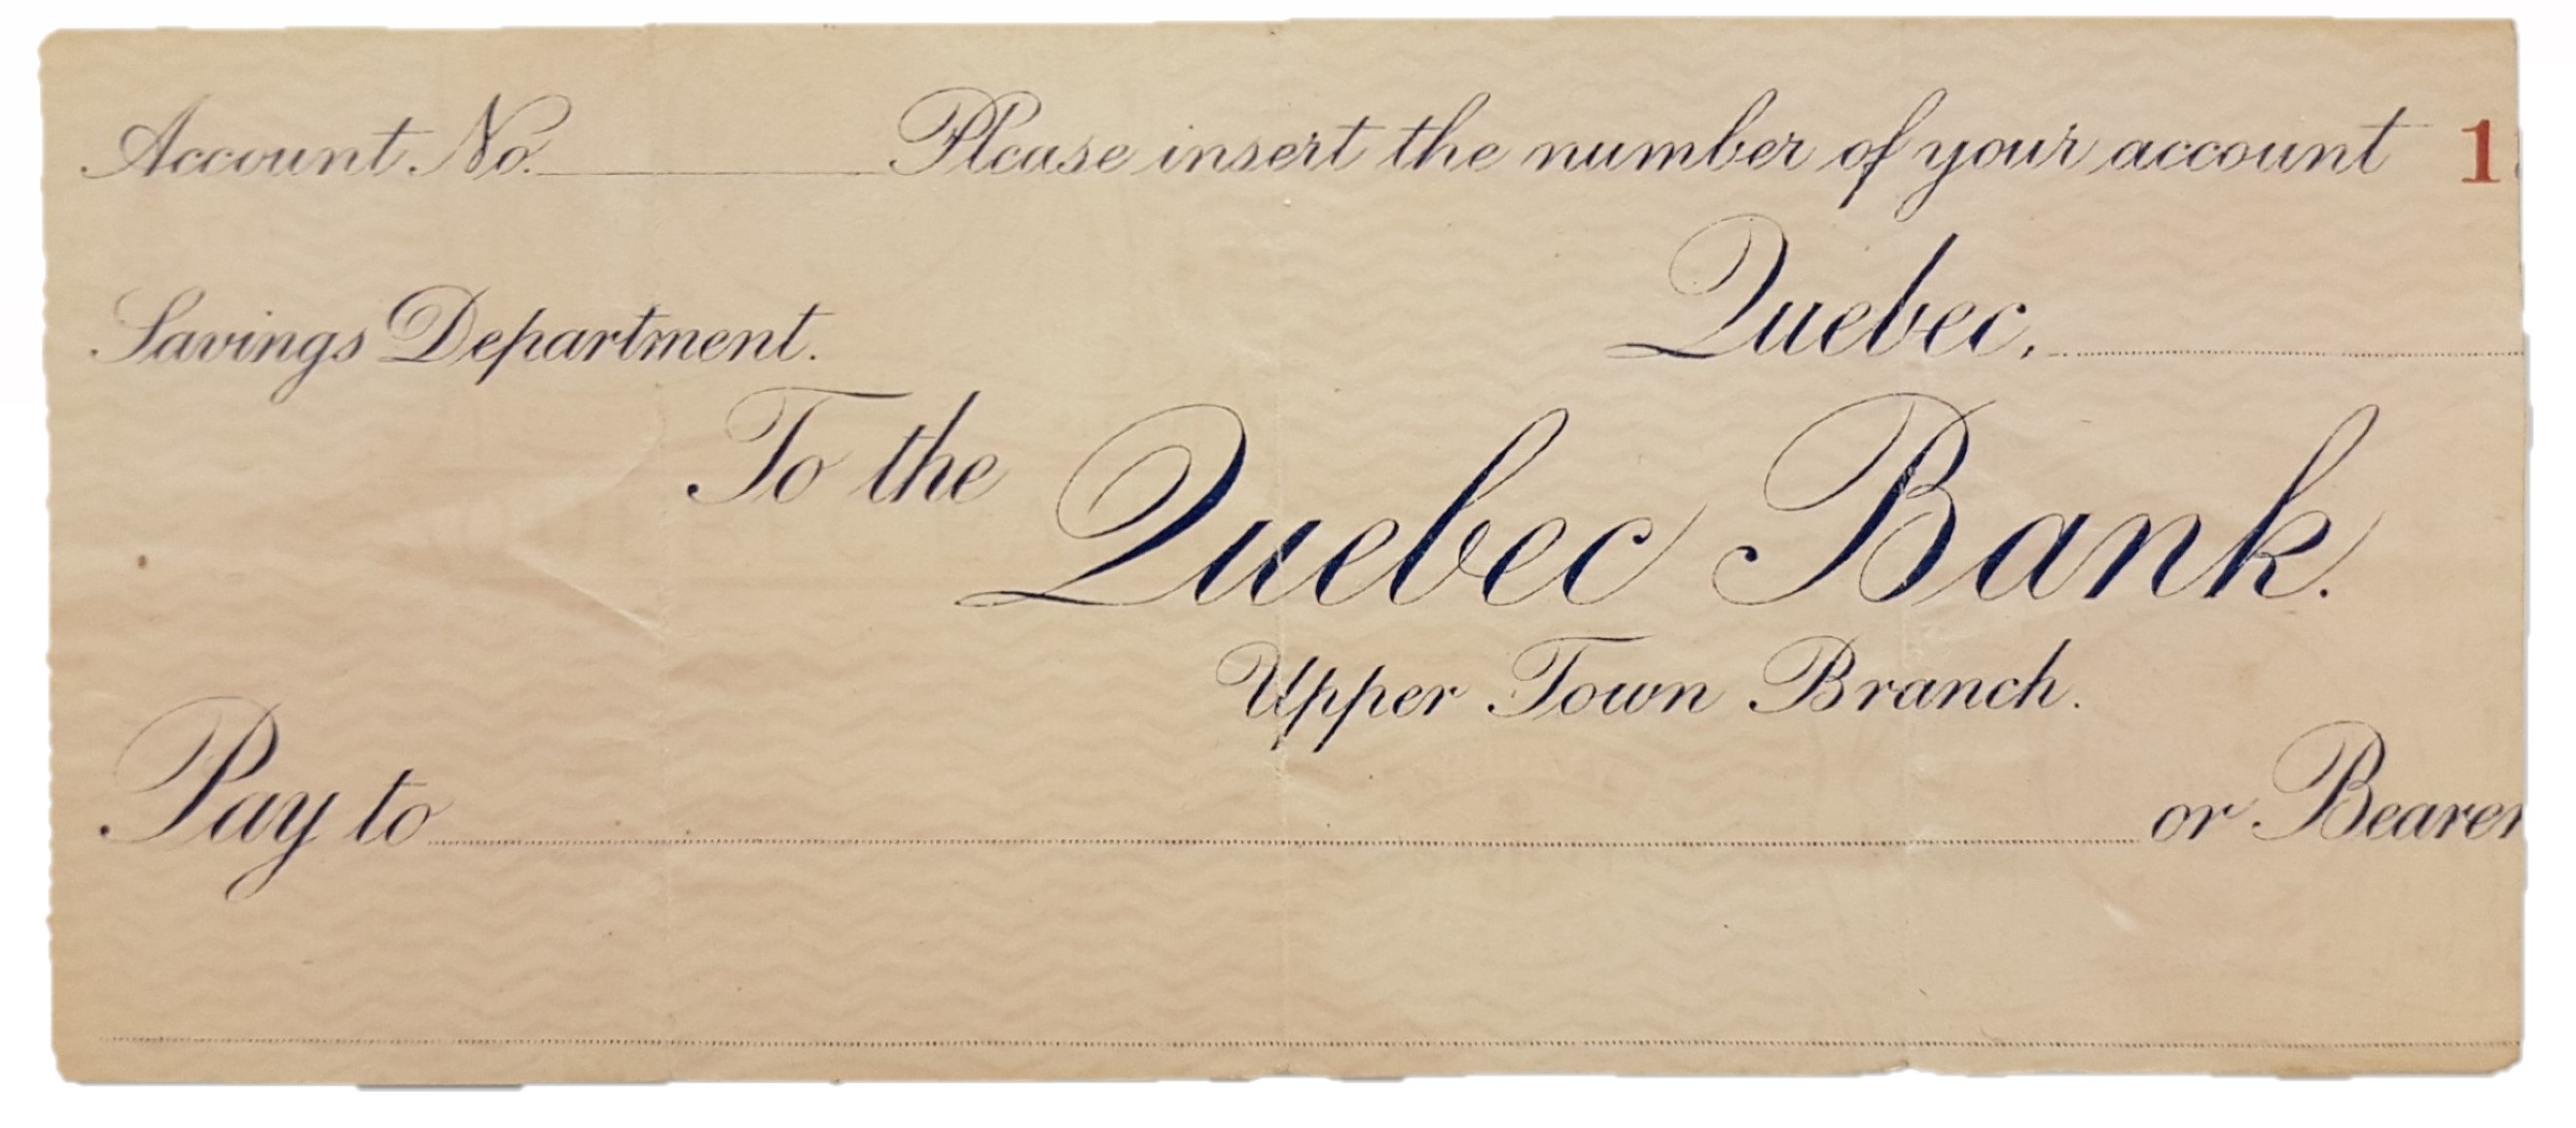 Account No. Please insert the number of your account 1
Savings Department. Quebec,
To the Quebec Bank.
Upper Town Branch.
Pay to or Bearer